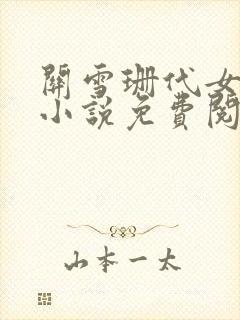 關雪珊代女
小說免費閱
山本一太